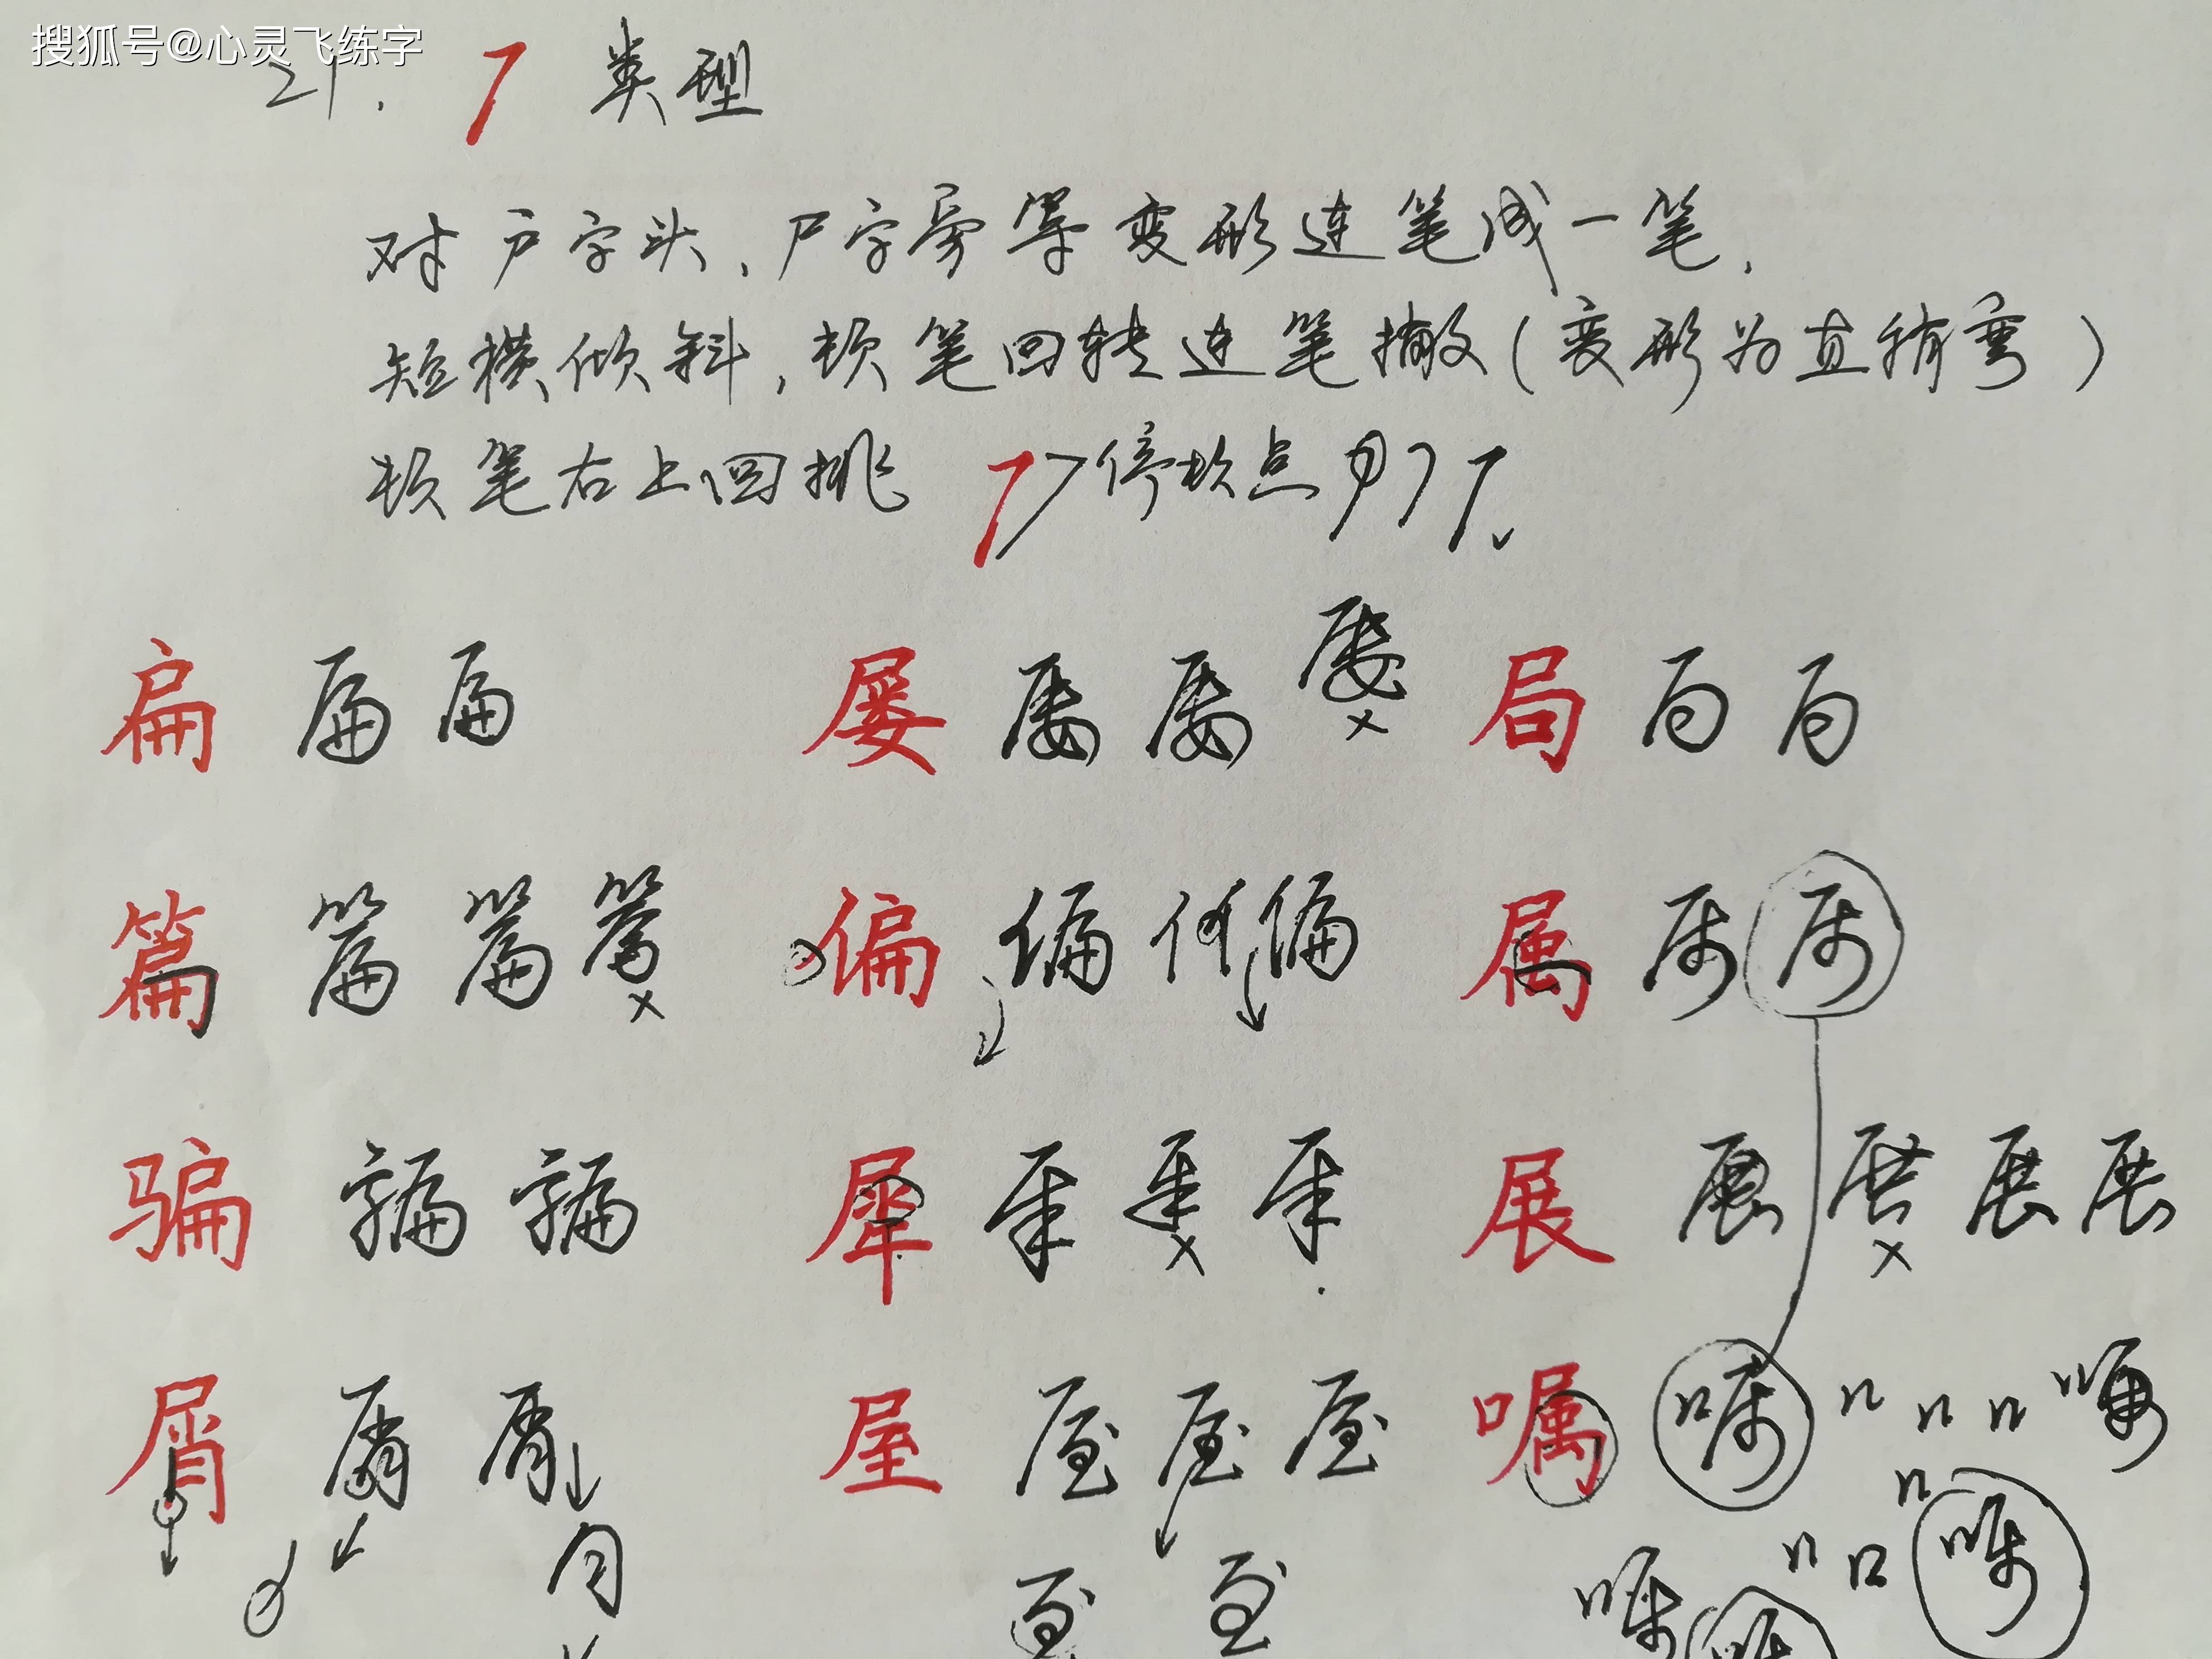 搜狐号@心灵飞练字
21. 类型
对户字头、尸字旁等变形连笔成一笔,
短横倾斜,顿笔回转连笔撇(变形为直稍弯)
顿笔右上回挑 停坎点
扁 扁 扁 屡 屡 屡 屡 × 局 局 局
篇 篇 篇 篇 × 偏 偏 偏 属 属 属
骗 骗 骗 犀 犀 犀 × 犀 展 展 展 × 展 展
屑 屑 屑 屋 屋 屋 屋 嘱 嘱 嘱
月 屋 屋 嘱 嘱